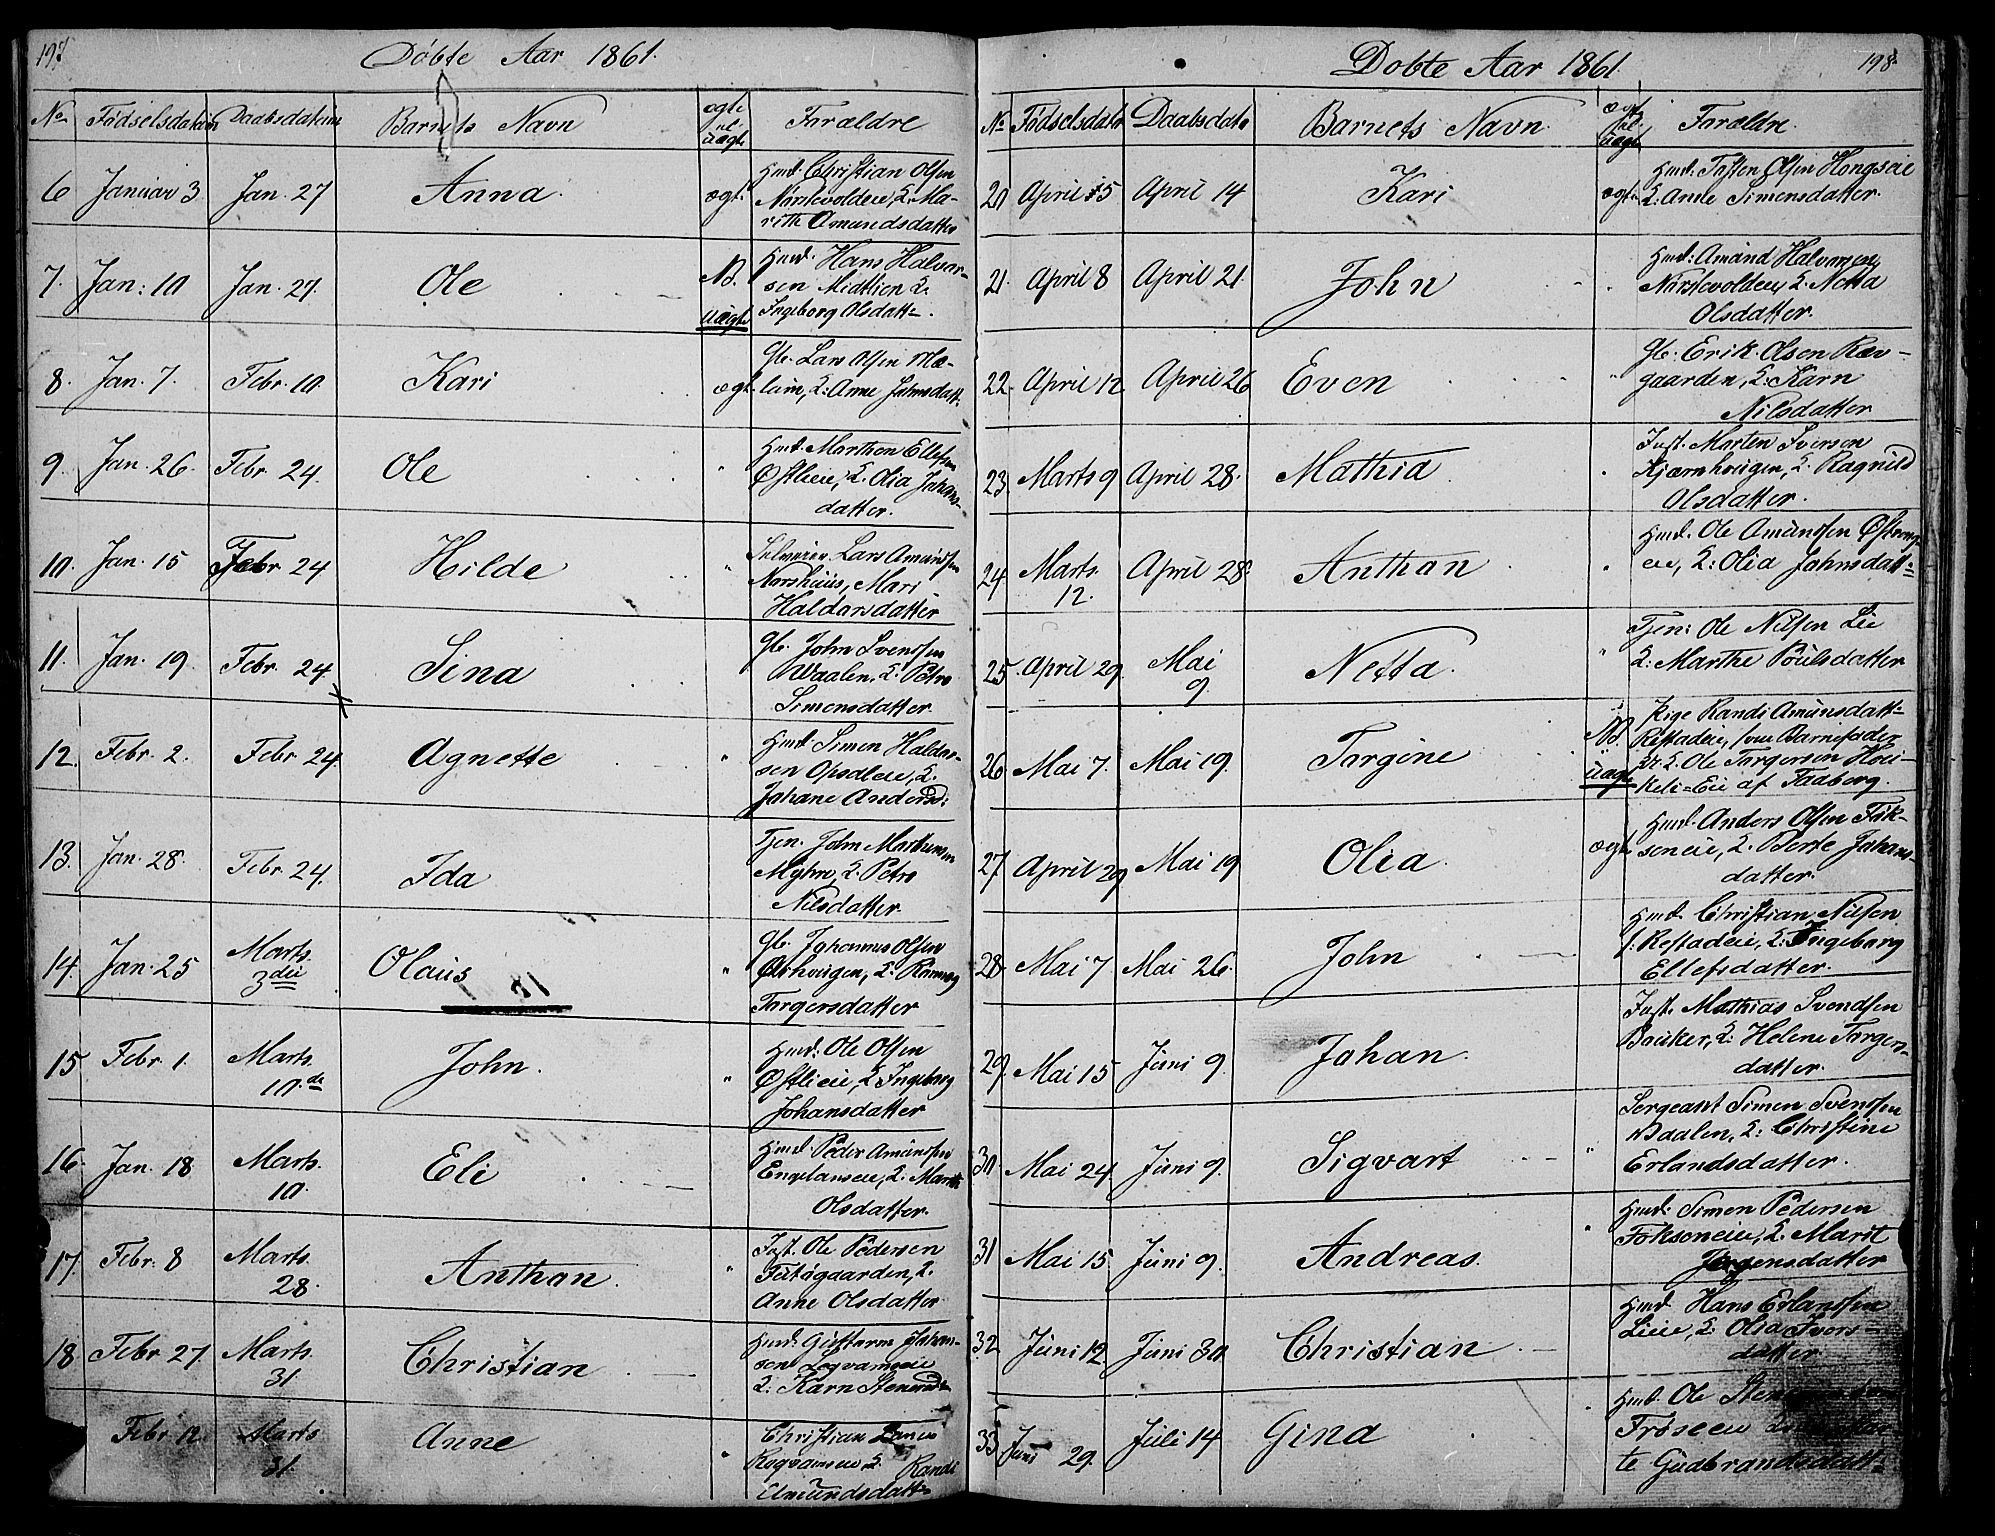 197
Döbte Aar 1861.
No Födselsdatum Daabsdatum Barnets Navn ægte el. uægte Forældre
6 Januar 3 Jan. 27 Anna ægt. Hmd. Christian Olsen
Nörstevoldeie, & Ma-
rith Amundsdatter
7. Jan: 10 Jan. 27. Ole NB. uægte Hmd. Hans Halvor-
sen Midtlien &
Ingeborg Olsdatt.
8. Jan. 7. Febr. 10 Kari ægt. Gb. Lars Olsen Mæ-
lum, & Anne Johnsdatt.
9. Jan. 26. Febr. 24. Ole " Hmd. Marthon Ellefsen
Østlieie, & Olia Johans-
datter.
10. Jan. 15 Febr. 24 Hilde " Selveier Lars Amundsen
Norshuus, Mari
Haldorsdatter
11. Jan. 19. Febr. 24 Sina Gb. John Svendsen
Waalen, & Petro
Simensdatter.
12. Febr. 2. Febr. 24 Agnette " Hmd. Simen Haldor-
sen Opsaleie, &
Johane Andersd:
13. Jan. 28. Febr. 24. Ida Tjen. John Marthinsen
Myhre, & Petro
Nilsdatter.
14. Jan. 25 Marts. 3die Olaus " Gb. Johannes Olsen
& Rønnoug
Torgersdatter
15 Febr. 1. Marts. 10.de John. " Hmd. Ole Olsen
Østlieie, & Ingeborg
Johansdatter
16. Jan. 18 Marts. 10. Eli Hmd. Peder Amundsen
Engelanseie, & Marit
Olsdatter.
17. Febr. 8 Marts. 28. Anthon. " Inst. Ole Pedersen
& Anne Olsdatter
18 Febr. 27. Marts. 31. Christian Hmd. Guttorm Johan-
sen
& Karn
Febr. 12 Marts 31. Anne " Christian
& Randi
Amundsdatt.
198
Dobte Aar 1861.
No Födselsdato Daabsdato Barnets Navn ægt el. uægte Forældre.
20 April 5 April 14 Kari ægte Hmd. Tosten Olsen Hongseie
& Anne Simensdatter.
21. April 8 April 21. John " Hmd: Amund Halvorsen
Nörstevoldeie, & Netta
Olsdatter.
22. April 12 April 26 Even " Gb. Erik Olsen Ræv-
gaarden, & Karn
Nilsdatter
23. Marts 9 April 28. Mathia " Inst. Morten Iversen
Kjærnhougen, & Ragnild
Olsdatter.
24 Marts. 12. April 28. Anthon " Hmd. Ole Amundsen
eie, & Olia Johnsdatt.
25. April 29. Mai 9. Netta " Tjen: Ole Nilsen Lie
& Marthe Poulsdatter
26 Mai 7. Mai 19. Torgine NB. uægte Pige Randi Amunsdatt.
Refstadeie, som Barnefader
er & Ole Torgersen
af Faaberg.
27 April 29 Mai 19 Olia ægte Hmd. Anders Olsen Fok-
soneie, & Berte Johans-
datter.
28. Mai 7 Mai 26. John Hmd. Christian Nilsen
Refstadeie, & Ingeborg
Ellefsdatter.
29. Mai 15 Juni 9. Johan. Inst. Mathias Svendsen
Bakker, & Helene Torgers-
datter.
30 Mai 24 Juni 9. Sigvart " Sergeant Simen Svendsen
Waalen, & Christine
Erlandsdatter.
31 Mai 15 Juni 9. Andreas. " Hmd: Simen Pedersen
Foksoneie, & Marit
Jørgensdatter
32 Juni 12. Juni 30 Christian Hmd. Hans Erlandsen
Lieie, & Olia Ivers-
datter
33 Juni 29. Juli 14 Gina " Hmd. Ole
Gudbrandsdatt.